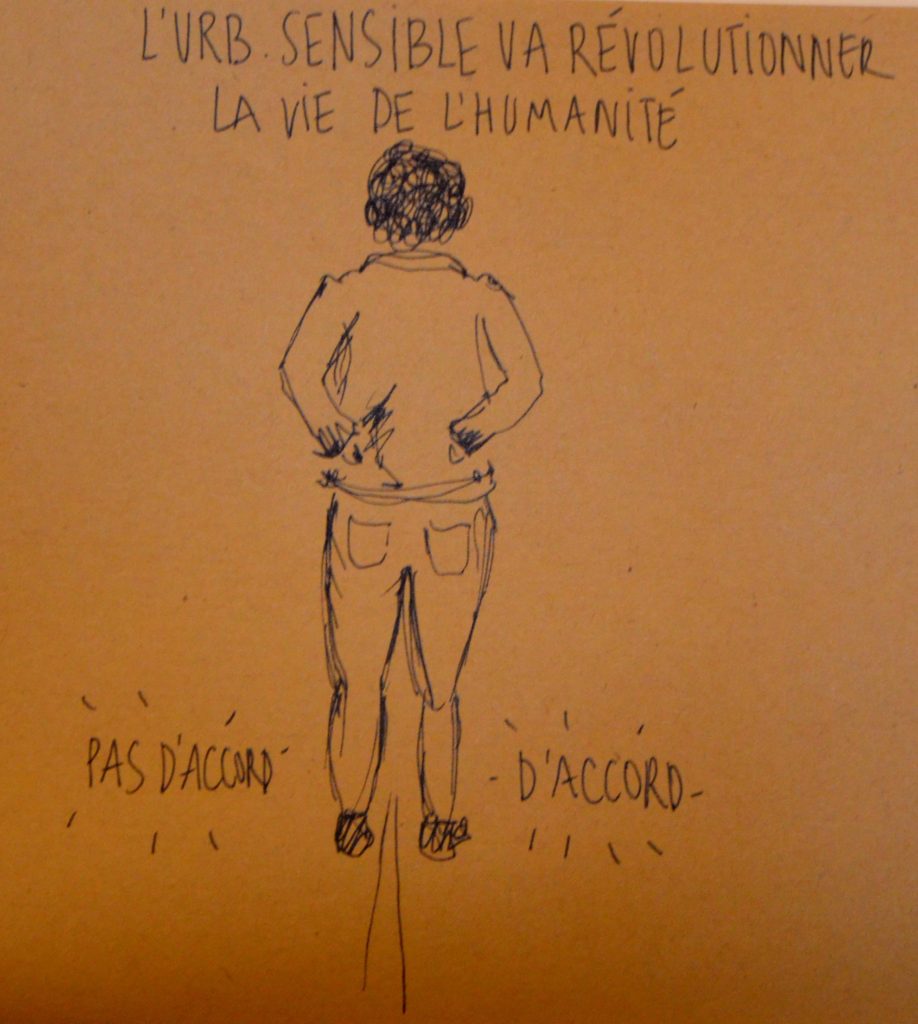 L'URB. SENSIBLE VA RÉVOLUTIONNER
LA VIE DE L'HUMANITÉ
PAS D'ACCORD
- D'ACCORD -